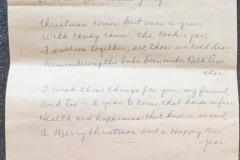 Christmas comes but once a year,
With candy canes, the cookie jar,
Families together, all those we hold dear
Remembering the babe born under Beth'lem
star
I wish these things for you, my friend,
And too - a year to come that holds no fear
Health and happiness that knows no end
A Merry Christmas and a Happy New
Year